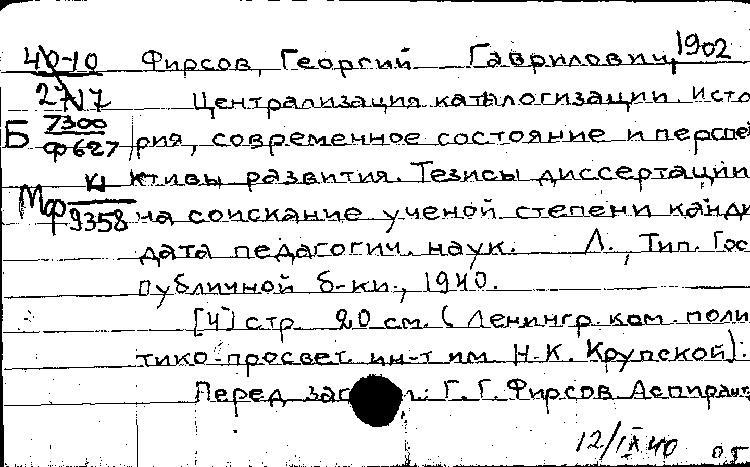 40-10 Фирсов, Георгий Гаврилович, 1902
27 17 Централизация каталогизации. Исто
Б 7300 Ф627 рия, современное состояние и перспе
ктивы развития. Тезисы диссертации
Мф К 9358 на соискание ученой степени канди
дата педагогич. наук. Л., Тип. Гос
публичной б-ки., 1940.
[4] стр. 20 см. (Ленингр. ком. поли
тико-просвет. ин-т им. Н.К. Крупской).
Перед заг : Г.Г. Фирсов Аспирант
12/IX 40